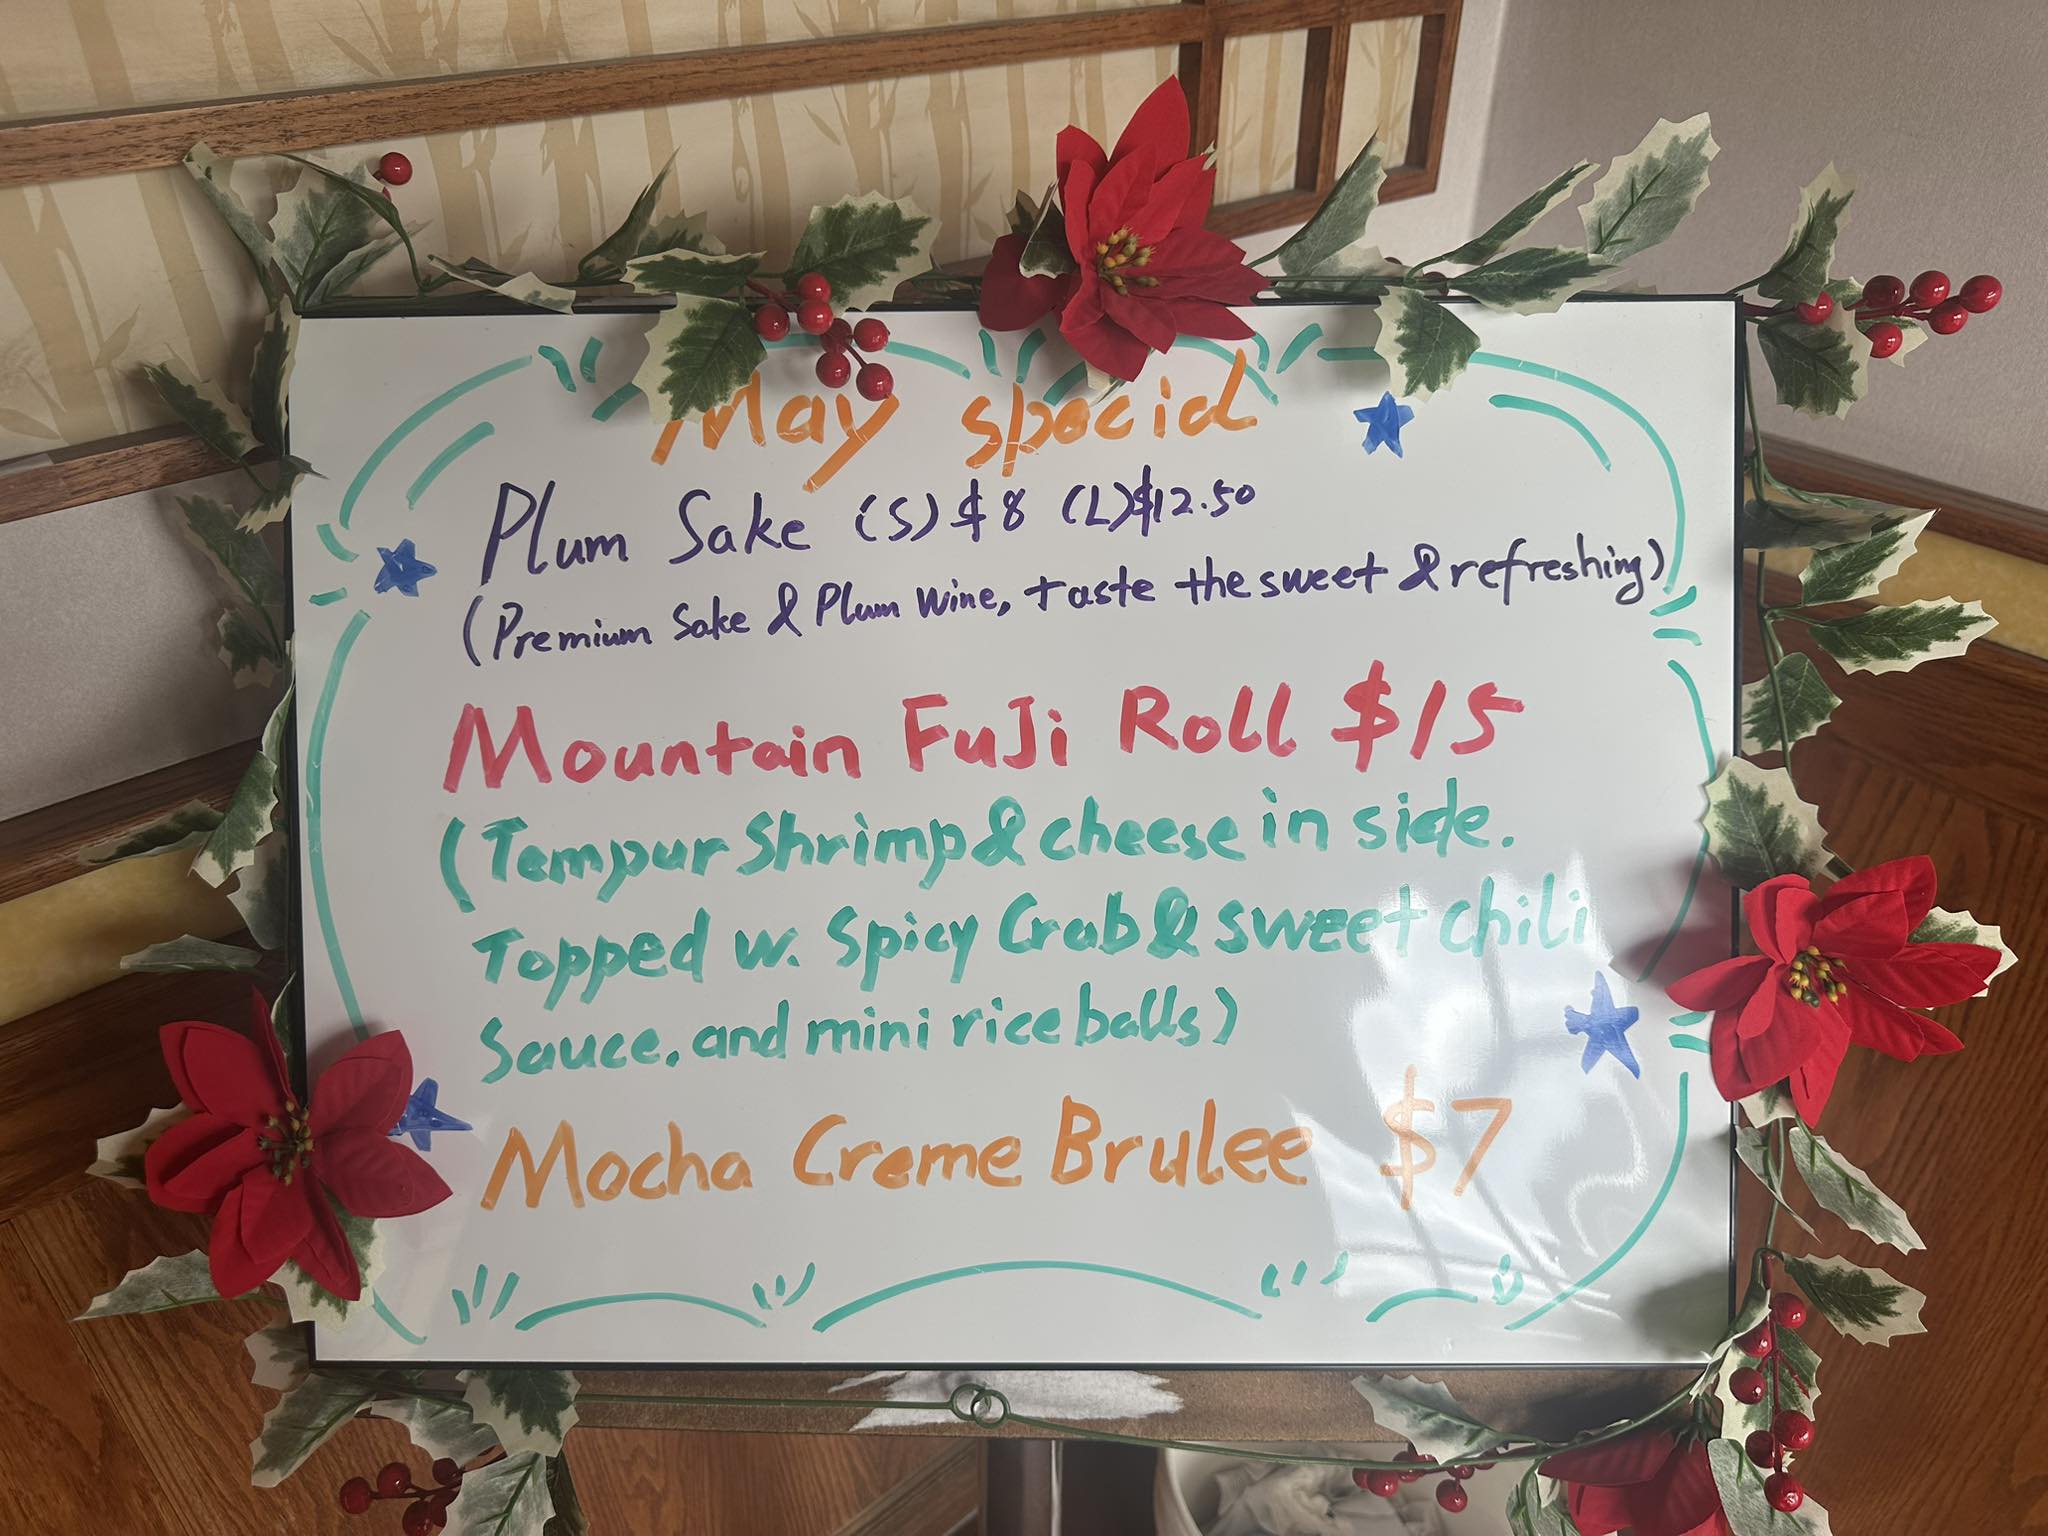 May special
Plum Sake (S) $8 (L) $12.50
(Premium Sake & Plum Wine, taste the sweet & refreshing)
Mountain FuJi Roll $15
(Tempur Shrimp & cheese in side.
Topped w. Spicy Crab & sweet chili
Sauce, and mini rice balls)
Mocha Creme Brulee $7